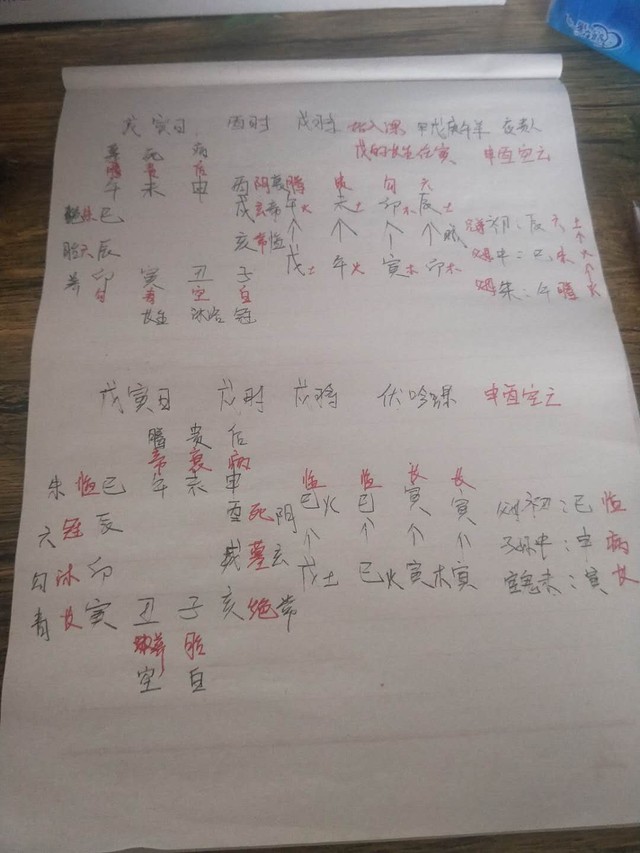 戊寅日 酉时 戌将 占入课 甲戊庚牛羊 夜贵人
戊的长生在寅 申酉空亡
死 病
腾 贵 后
午 未 申 酉 阴 腾 贵 勾 六
朱巳 戌玄帝 午火 未土 卯木 辰土
初:辰六土
胎六辰 亥常临 ↑ ↑ ↑ ↑
中:巳朱火
养 卯 寅 丑 子 戊土 午火 寅木 卯木
末:午腾火
勾 青 空 白
长生 沐浴 冠
戊寅日 戌时 戌将 伏吟课 申酉空亡
腾 贵 后
帝 衰 病
朱临巳 午 未 申 临 临 长 长
酉死阴 巳火 巳 寅 寅 初:巳临
六冠辰 ↑ ↑ ↑ ↑
戌墓玄 中:申病
勾沐卯 戊土 巳火 寅木 寅
末:寅长
青长寅 丑 子 亥绝常
养 胎
空 白